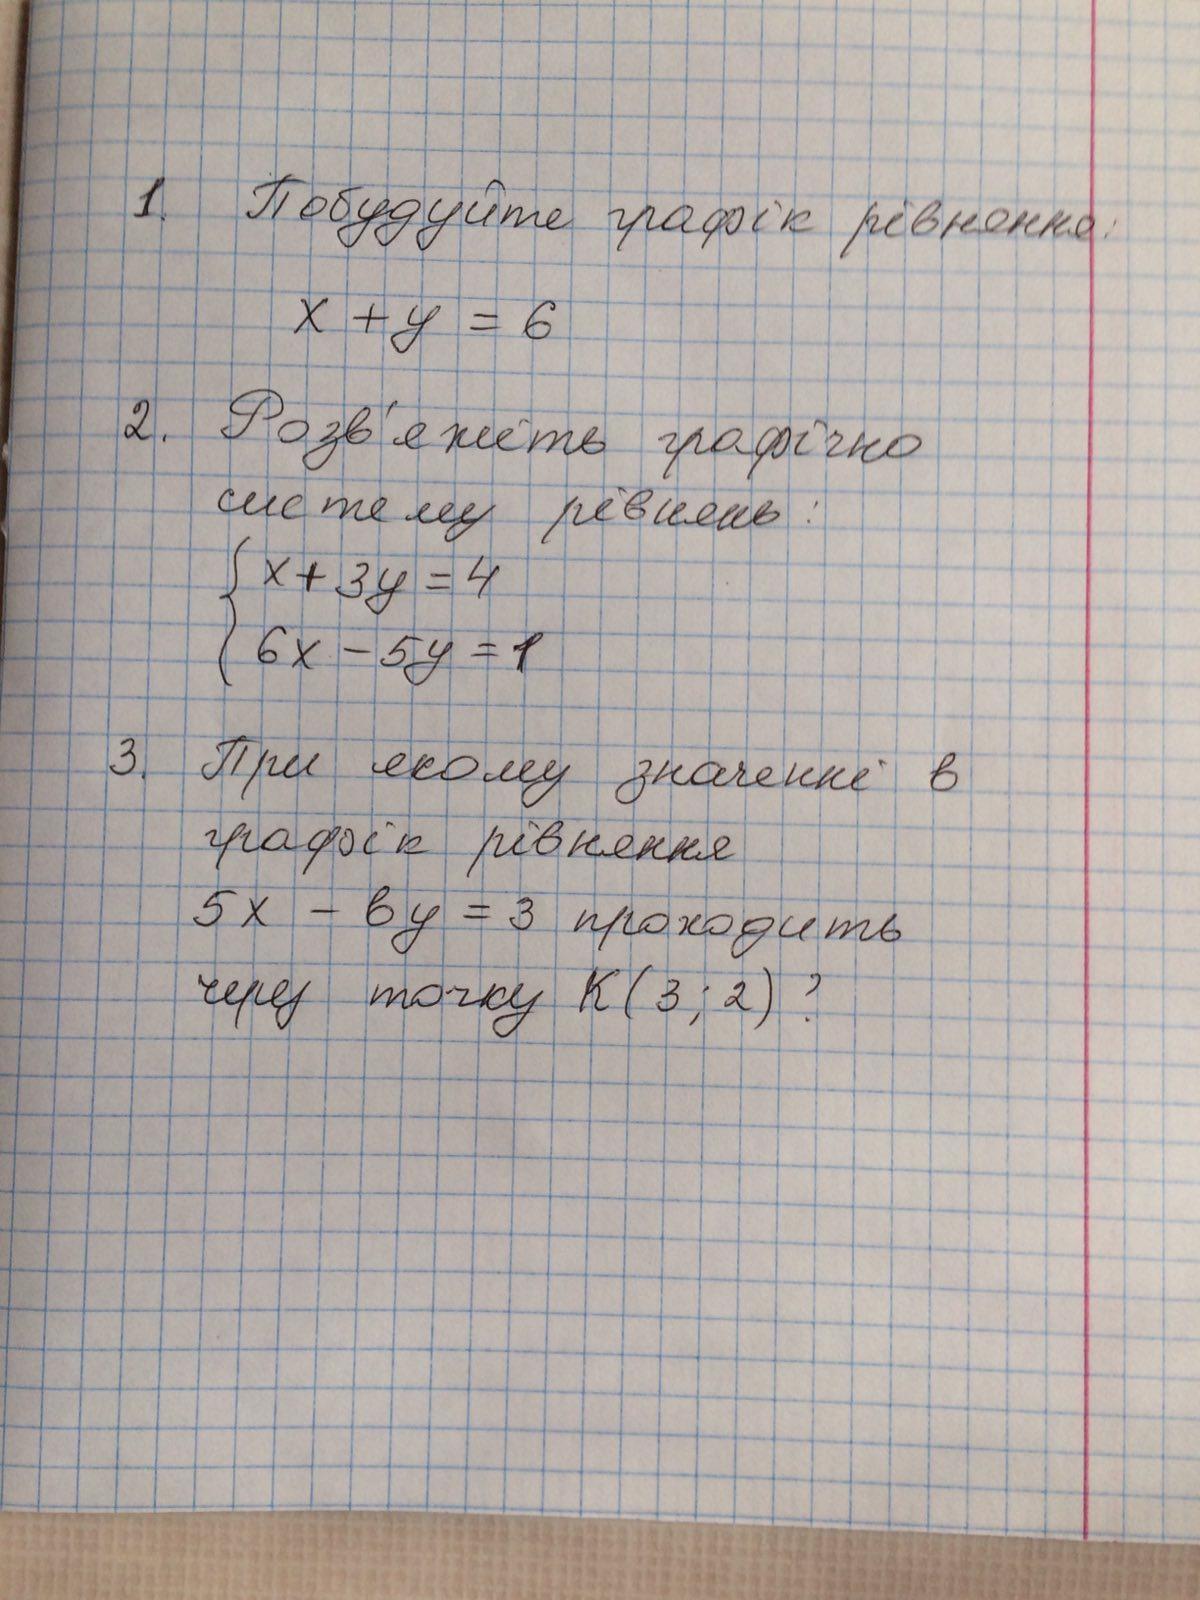 1. Побудуйте графік рівняння:
x + y = 6
2. Розв'яжіть графічно
систему рівнянь:
{ x + 3y = 4
6x - 5y = 1
3. При якому значенні в
графік рівняння
5x - вy = 3 проходить
через точку К(3; 2)?